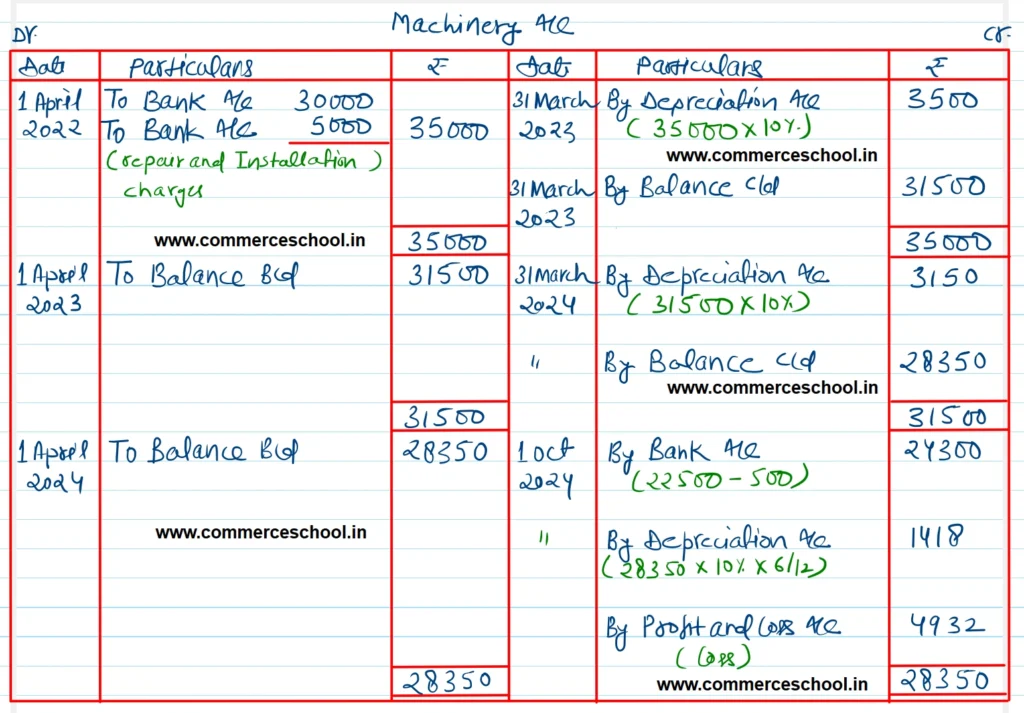 Machinery A/c
Dr. Cr.
Date Particulars ₹ Date Particulars ₹
1 April To Bank A/c 30000 31 March By Depreciation A/c 3500
2022 To Bank A/c 5000 35000 2023 (35000 x 10%.)
(repair and Installation) www.commerceschool.in
charges 31 March By Balance c/d 31500
2023
www.commerceschool.in 35000 35000
1 April To Balance B/d 31500 31 March By Depreciation A/c 3150
2023 2024 (31500 x 10%)
" By Balance c/d 28350
www.commerceschool.in
31500 31500
1 April To Balance B/d 28350 1 Oct By Bank A/c 24300
2024 2024 (22500 - 500)
www.commerceschool.in " By Depreciation A/c 1418
(28350 x 10% x 6/12)
By Profit and Loss A/c 4932
(Loss)
28350 www.commerceschool.in 28350